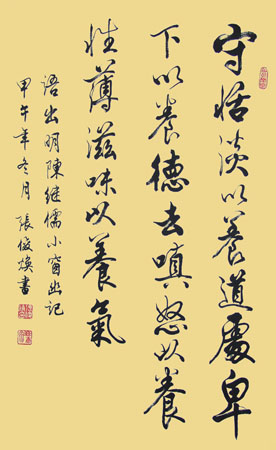 守恬淡以養道處卑
下以養德去嗔怒以養
性薄滋味以養氣
語出明陳繼儒小窗幽記
甲午年冬月 張俊煥書